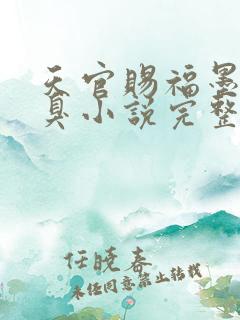 天官赐福墨
真小说完整
任晓春
未经同意禁止转载